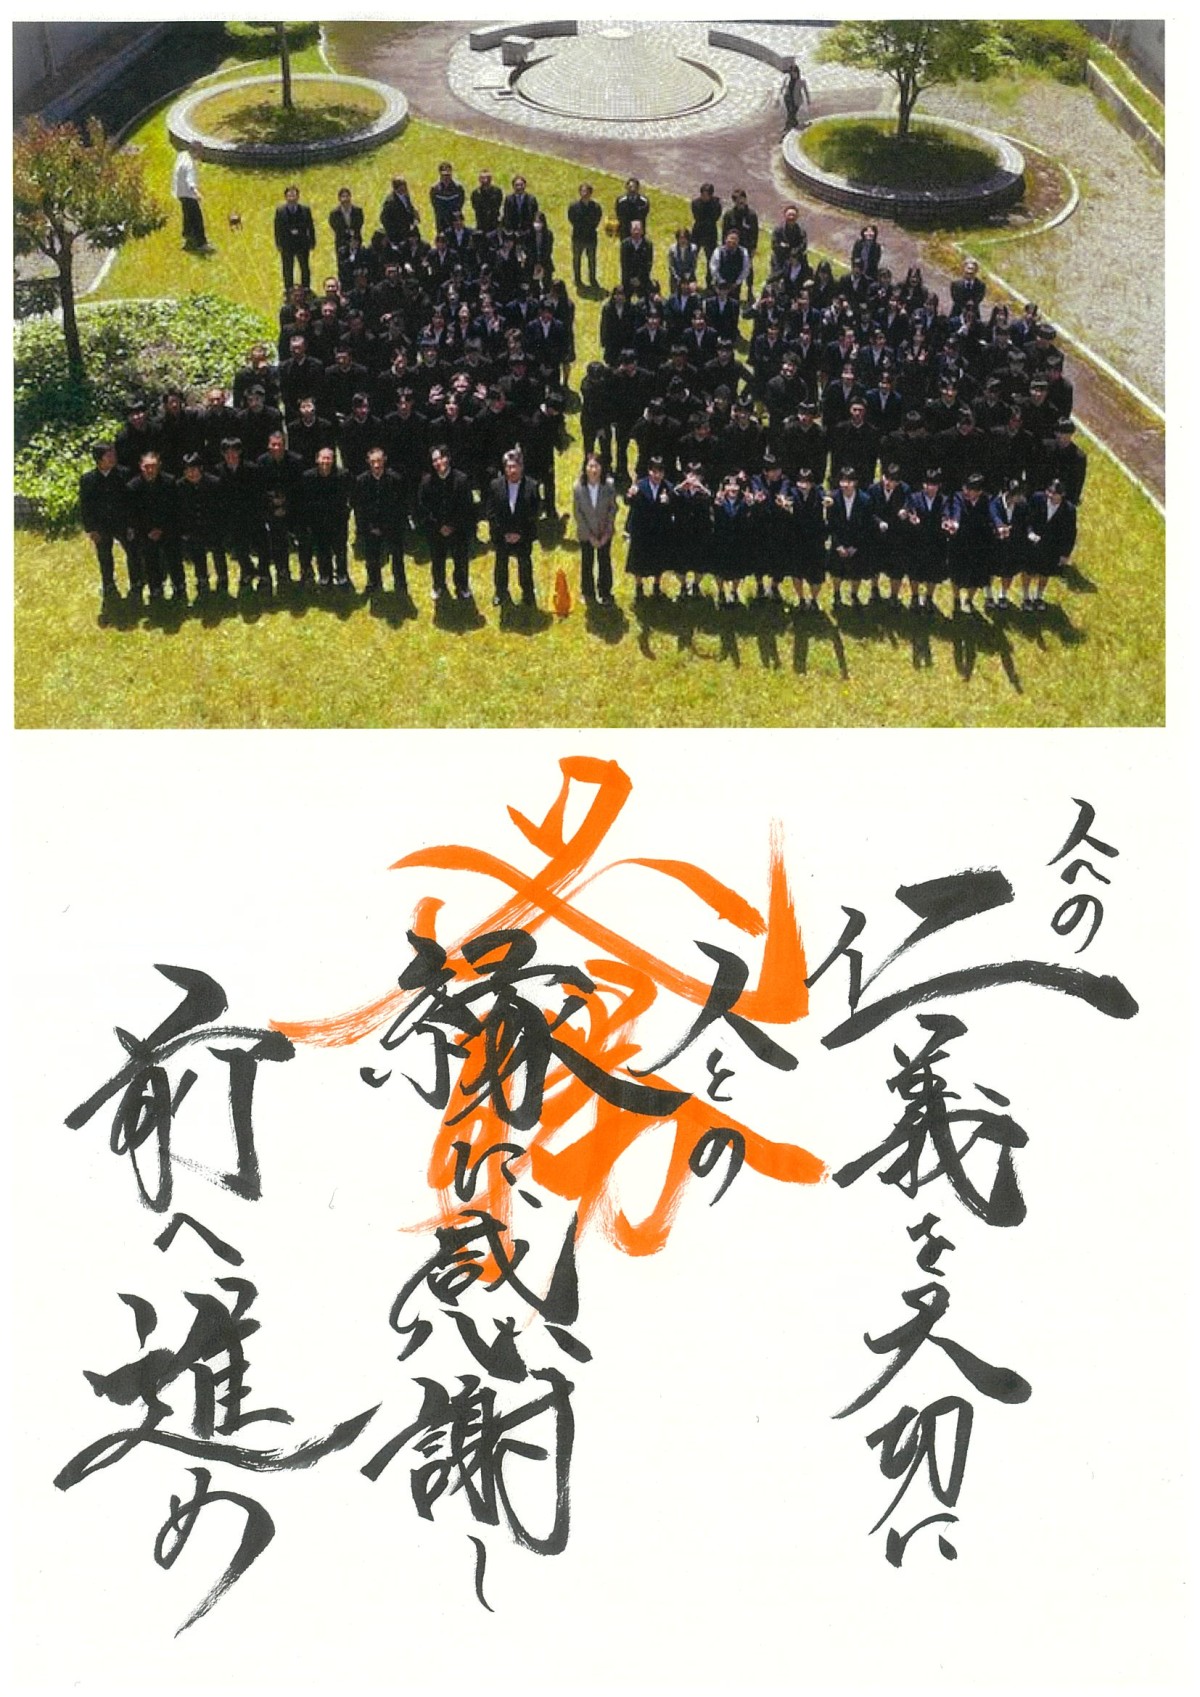 必勝
人への
仁義を大切に
人との
縁に、感謝し
前へ進め